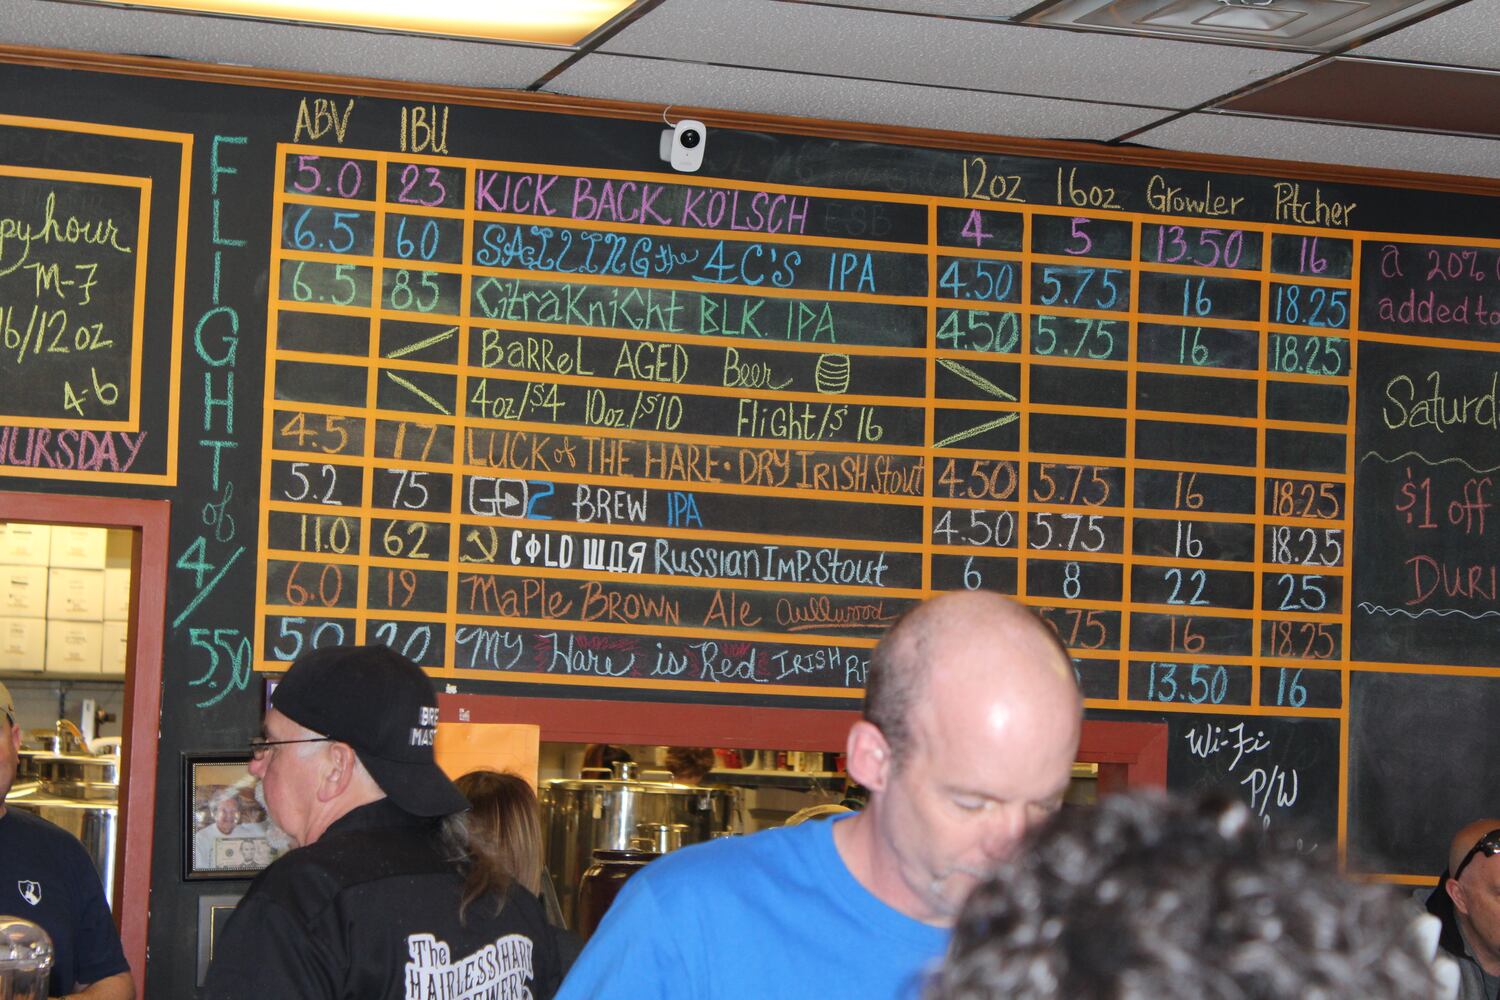 ABV IBU 12oz 16oz Growler Pitcher
5.0 23 KICK BACK KÖLSCH 4 5 13.50 16
6.5 60 SAILING the 4C'S IPA 4.50 5.75 16 18.25
6.5 85 CitraKnight BLK. IPA 4.50 5.75 16 18.25
BARREL AGED Beer
4oz/$4 10oz/$10 Flight/$16
4.5 17 LUCK of THE HARE • DRY IRISH Stout 4.50 5.75 16 18.25
5.2 75 2 BREW IPA 4.50 5.75 16 18.25
11.0 62 ☭ COLD ШДЯ Russian IMP. Stout 6 8 22 25
6.0 19 Maple BROWN Ale 16 18.25
5.0 20 My Hare is Red IRISH 13.50 16
FLIGHT of
4/
5.50
hour
M-7
/12oz
4-6
a 20%
added to
$1 off
Wi-Fi
P/W
The
HAIRLESS HARE